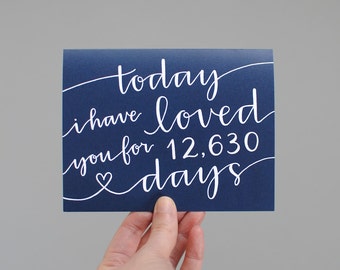 today
i have loved
you for 12,630
days